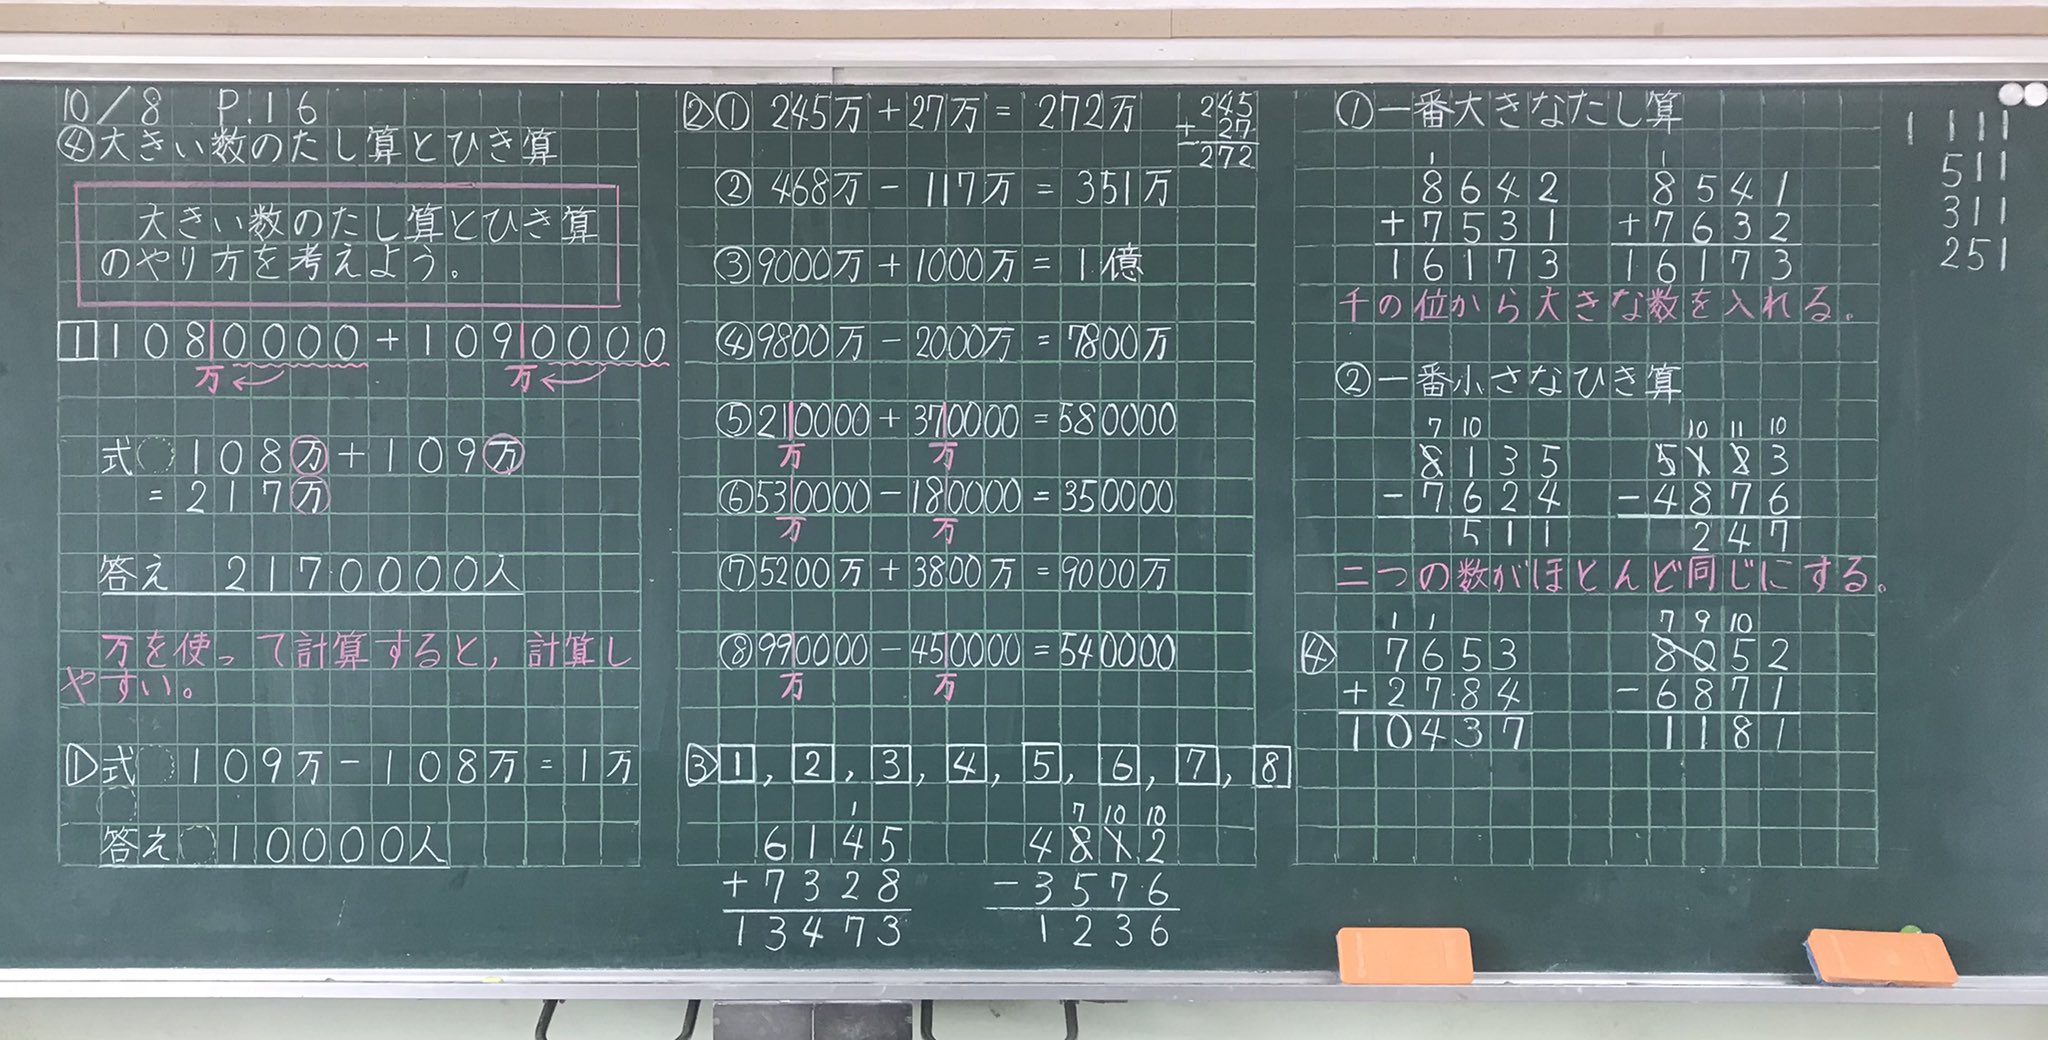 10/8 P.16
④大きい数のたし算とひき算
大きい数のたし算とひき算
のやり方を考えよう。
1 1080000+1090000
万 万
式 108万+109万
=217万
答え 2170000人
万を使って計算すると，計算し
やすい。
①式 109万-108万=1万
答え 10000人
②① 245万+27万=272万
245
+27
272
② 468万-117万=351万
③9000万+1000万=1億
④9800万-2000万=7800万
⑤210000+370000=580000
万 万
⑥530000-180000=350000
万 万
⑦5200万+3800万=9000万
⑧990000-450000=540000
万 万
③1,2,3,4,5,6,7,8
1
6145
+7328
13473
7 10 10
4812
-3576
1236
①一番大きなたし算
1
8642
+7531
16173
1
8541
+7632
16173
千の位から大きな数を入れる。
②一番小さなひき算
7 10
8135
-7624
511
10 11 10
5123
-4876
247
二つの数がほとんど同じにする。
④
1 1
7653
+2784
10437
7 9 10
8052
-6871
1181
1111
511
311
251